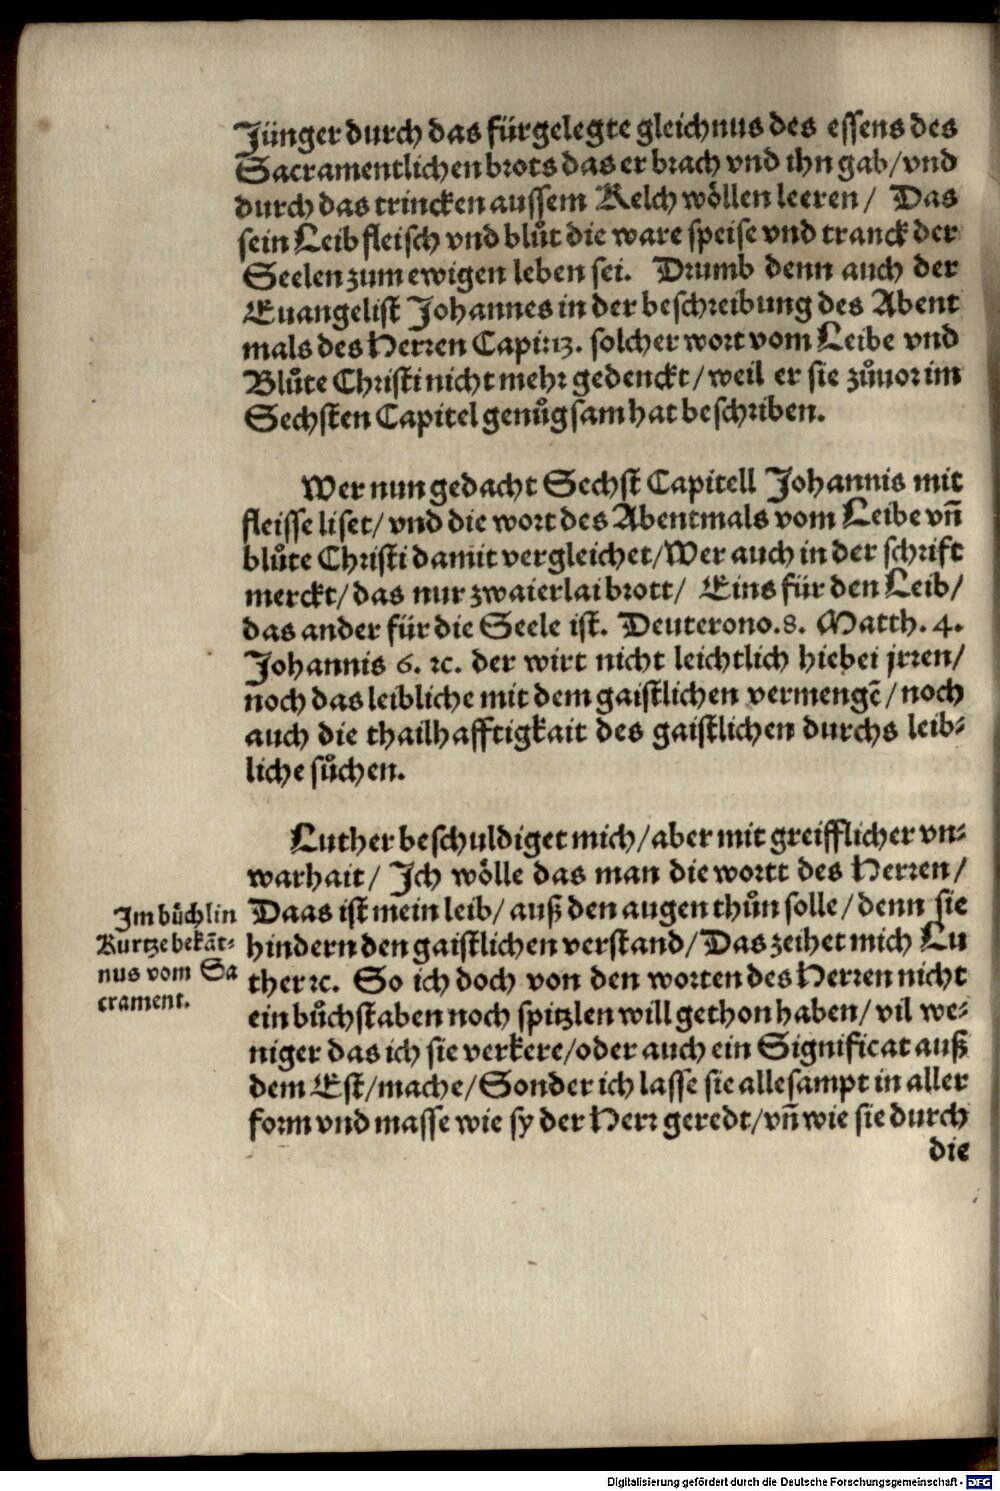 Jünger durch das fürgelegte gleichnus des essens des
Sacramentlichen brots das er brach vnd ihn gab/vnd
durch das trincken aussem Kelch wöllen leeren/ Das
sein Leib fleisch vnd blůt die ware speise vnd tranck der
Seelen zum ewigen leben sei. Drumb denn auch der
Euangelist Johannes in der beschreibung des Abent
mals des Herren Capi. 13. solcher wort vom Leibe vnd
Blůte Christi nicht mehr gedenckt/weil er sie zůuor im
Sechsten Capitel genůgsam hat beschriben.
Wer nun gedacht Sechst Capitell Johannis mit
fleisse liset/vnd die wort des Abentmals vom Leibe vñ
blůte Christi damit vergleichet/Wer auch in der schrift
merckt/das nur zwaierlai brott/ Eins für den Leib/
das ander für die Seele ist. Deuterono. 8. Matth. 4.
Johannis 6. ꝛc. der wirt nicht leichtlich hiebei jrren/
noch das leibliche mit dem gaistlichen vermengē/noch
auch die thailhafftigkait des gaistlichen durchs leib-
liche sůchen.
Luther beschuldiget mich/aber mit greifflicher vn-
warhait/ Ich wölle das man die wortt des Herren/
Daas ist mein leib/ auß den augen thůn solle/denn sie
hindern den gaistlichen verstand/Das zeihet mich Lu
ther ꝛc. So ich doch von den worten des Herren nicht
ein bůchstaben noch spitzlen will gethon haben/ vil we-
niger das ich sie verkere/oder auch ein Significat auß
dem Est/mache/Sonder ich lasse sie allesampt in aller
form vnd masse wie sy der Herr geredt/vñ wie sie durch
die
Im bůchlin
Kurtze bekāt-
nus vom Sa
crament.
Digitalisierung gefördert durch die Deutsche Forschungsgemeinschaft - DFG